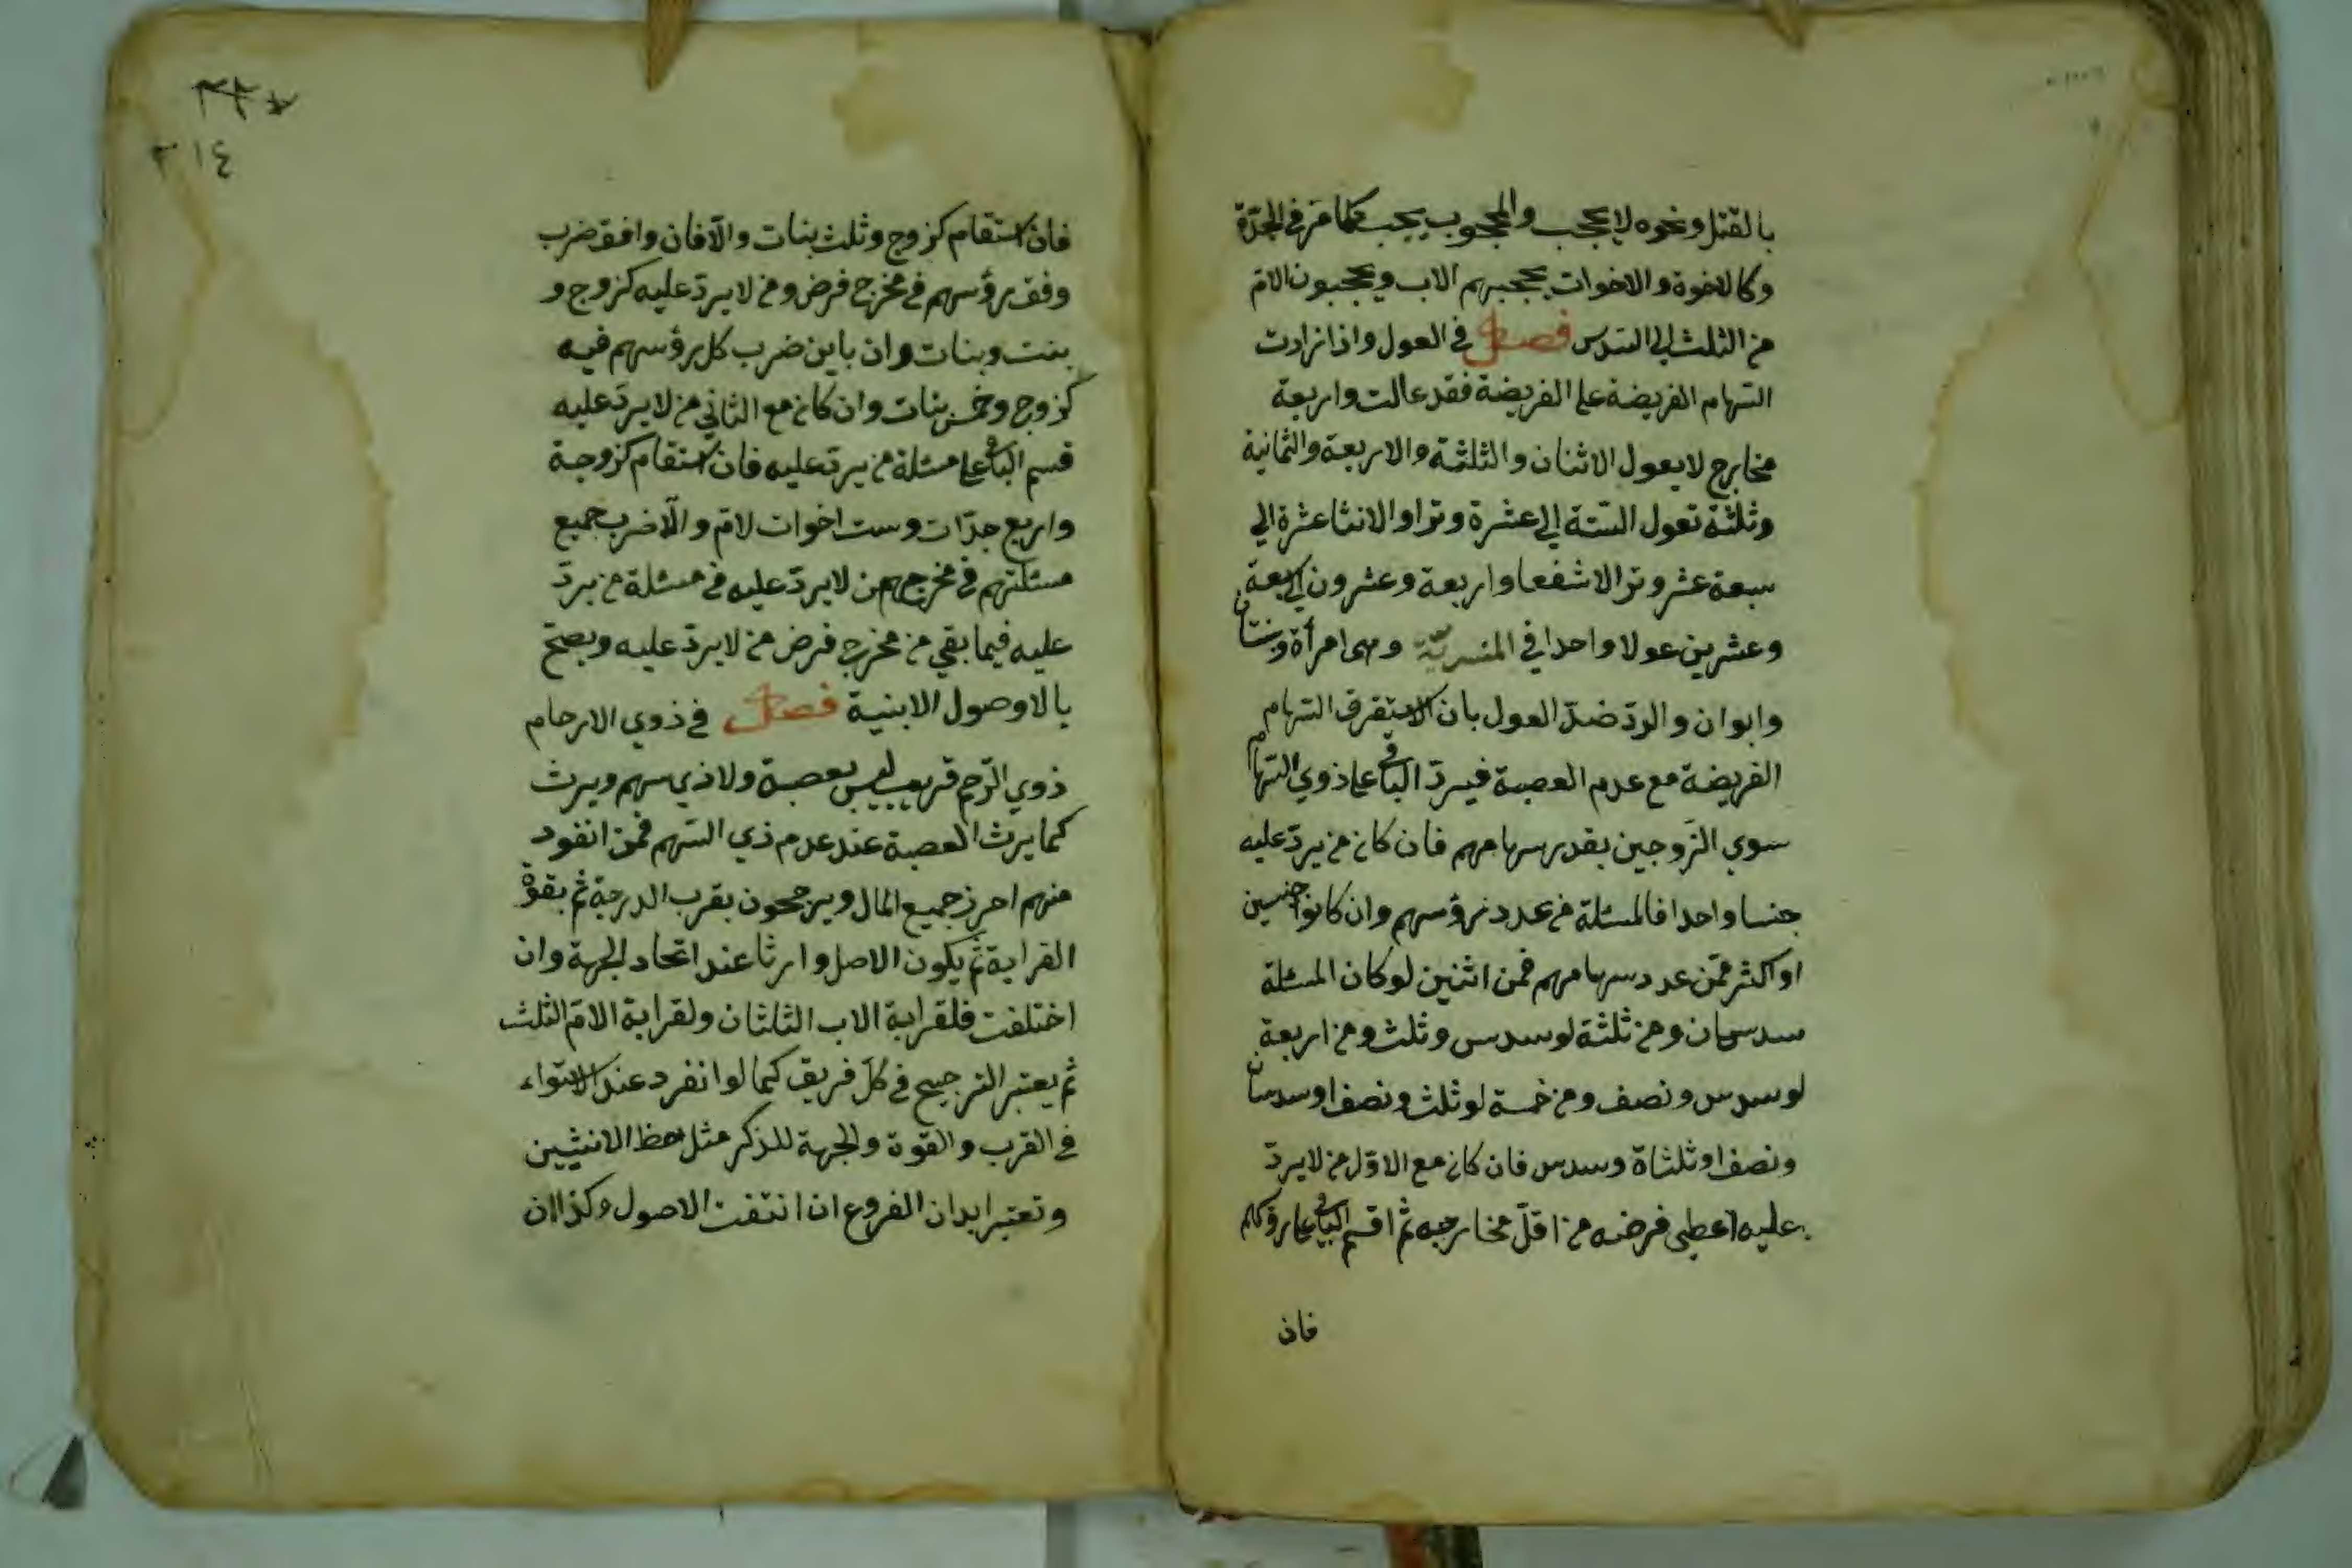 بالقتل ونحوه لا يحجب والمحجوب يحجب كما مر في الجدة
وكالاخوة والاخوات يحجبهم الاب ويحجبون الام
من الثلث الى السدس فصل في العول واذا زادت
السهام الفريضة على الفريضة فقد عالت واربعة
مخارج لا يعول الاثنان والثلثة والاربعة والثمانية
وثلثة تعول الستة الي عشرة وترا و الاثنا عشرة الي
سبعة عشر وترا لا شفعا واربعة وعشرون الي سبعة
وعشرين عولا واحدا في المنبرية وهى امرأة وبنتان
وابوان والرد ضد العول بان لا يستغرق السهام
الفريضة مع عدم العصبة فيرد الباقى على ذوي السهام
سوي الزوجين بقدر سهامهم فان كان من يرد عليه
جنسا واحدا فالمسئلة من عدد رؤسهم وان كانوا جنسين
او اكثر فمن عدد سهامهم فمن اثنين لو كان المسئلة
سدسان ومن ثلثة لو سدس وثلث ومن اربعة
لو سدس ونصف ومن خمسة لو ثلث ونصف او سدسان
ونصف او ثلثاة وسدس فان كان مع الاول من لا يرد
عليه اعطى فرضه من اقل مخارجه ثم اقسم الباقى على رؤسهم
فان
٢١٤
فان استقام كزوج وثلث بنات والا فان وافق ضرب
وفق رؤسهم في مخرج فرض من لا يرد عليه كزوج و
بنت وبنات وان باين ضرب كل رؤسهم فيه
كزوج وخمس بنات وان كان مع الثاني من لا يرد عليه
قسم الباقى على مسئلة من يرد عليه فان استقام كزوجة
واربع جدات وست اخوات لام والا ضرب جميع
مسئلتهم في مخرج من لا يرد عليه في مسئلة من يرد
عليه فيما بقي من مخرج فرض من لا يرد عليه ويصح
بالاوصول الابنية فصل في ذوي الارحام
ذوي الرحم قريب ليس بعصبة ولا ذي سهم ويرث
كما يرث العصبة عند عدم ذي السهم فمن انفود
منهم احرز جميع المال ويرجحون بقرب الدرجة ثم بقوة
القرابة ثم يكون الاصل وارثا عند اتحاد الجهة وان
اختلفت فلقرابة الاب الثلثان ولقرابة الام الثلث
ثم يعتبر الترجيح في كل فريق كما لو انفرد عند الاستواء
في القرب والقوة والجهة للذكر مثل حظ الانثيين
وتعتبر ابدان الفروع ان اتفقت الاصول وكذا ان